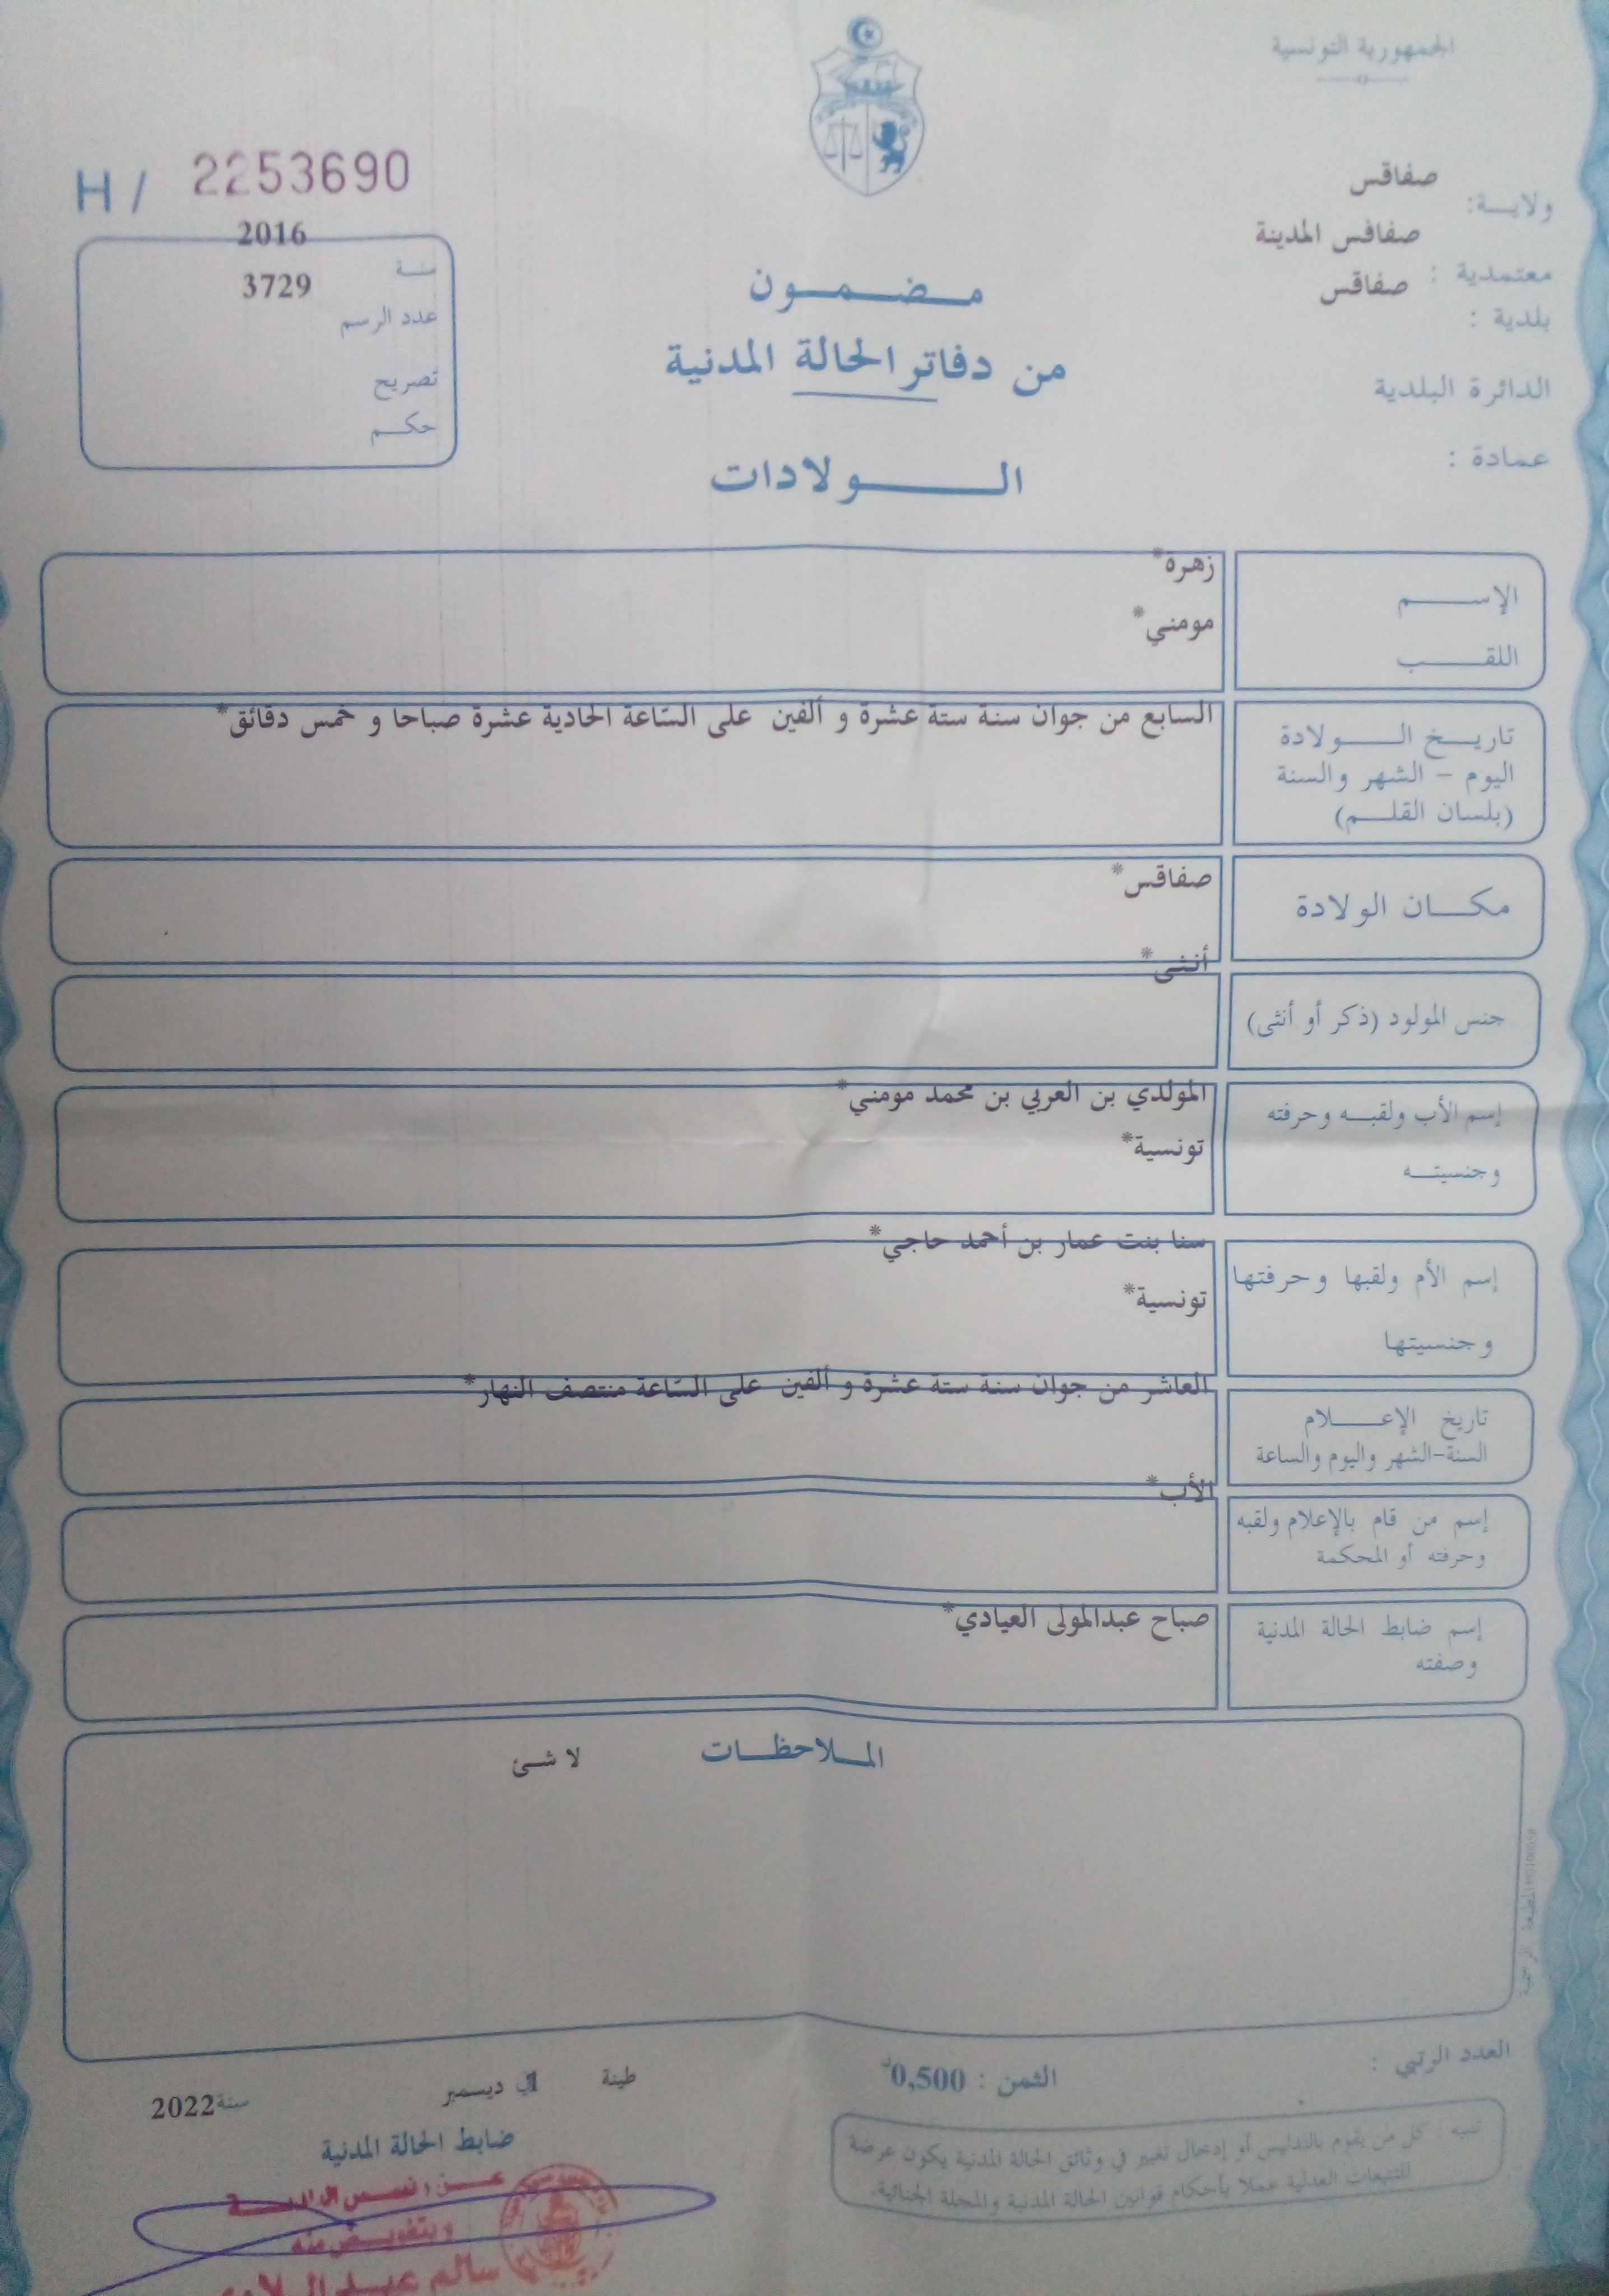 الجمهورية التونسية
H / 2253690
ولايـة: صفاقس
معتمدية : صفاقس المدينة
بلدية : صفاقس
الدائرة البلدية
عمادة :
سنة 2016
عدد الرسم 3729
تصريح
حكم
مضمون
من دفاتر الحالة المدنية
الولادات
الإسم زهرة*
اللقب مومني*
تاريخ الولادة
اليوم - الشهر والسنة
(بلسان القلم)
السابع من جوان سنة ستة عشرة و ألفين على الساعة الحادية عشرة صباحا و خمس دقائق*
مكان الولادة صفاقس*
جنس المولود (ذكر أو أنثى) أنثى*
إسم الأب ولقبه وحرفته المولدي بن العربي بن محمد مومني*
وجنسيته تونسية*
إسم الأم ولقبها وحرفتها سنا بنت عمار بن أحمد حاجي*
وجنسيتها تونسية*
تاريخ الإعلام
السنة-الشهر واليوم والساعة
العاشر من جوان سنة ستة عشرة و ألفين على الساعة منتصف النهار*
إسم من قام بالإعلام ولقبه
وحرفته أو المحكمة
الأب*
إسم ضابط الحالة المدنية
وصفته
صباح عبدالمولى العيادي*
الملاحظات لا شئ
العدد الرتبي :
الثمن : 0,500د
طينة ديسمبر سنة 2022
ضابط الحالة المدنية
تنبيه : كل من يقوم بالتدليس أو إدخال تغيير في وثائق الحالة المدنية يكون عرضة
للتتبعات العدلية عملا بأحكام قوانين الحالة المدنية والمجلة الجنائية.
وبتفويض منه
سالم